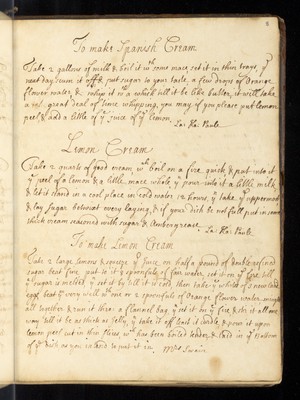 8
To make Spanish Cream
Take 2 gallons of milk & boil it wth some mace, set it in thin trays, ye
next day scum it off & put sugar to your taste, a few drops of Orange
flower water, & whip it wth a whisk till it be like butter, it will take
a great deal of time whipping, you may if you please put lemon
peel & add a little of ye juice of ye lemon
Lemon Cream
Take 2 quarts of good cream wth boil on a fire quick & put into it
ye peel of a lemon & a little mace whole, ye pour into it a little milk
& let it stand in a cool place in cold water 12 hours, ye take ye uppermost
& lay sugar betwixt every laying, & if your dish be not full put in some
thick cream seasoned with sugar & Ambergreace.
To make Lemon Cream
Take 2 large lemons & squeeze ye Juice on half a pound of double refined
sugar beat fine, put to it 8 spoonfuls of fair water, set it on ye fire, till
ye sugar is melted, ye set it by till it is cold, then take ye whites of new laid
eggs beat ym very well wth one or 2 spoonfuls of Orange flower water, mingle
all together & run it thro: a flannel bag, ye set it on ye fire & stir it all one
way till it be as thick as Jelly, ye take it off least it curdle, & pour it upon
lemon peel cut in thin slices, wch has been boiled tender, & laid in ye bottom
of ye dish as you intend to put it in. Mrs Swain